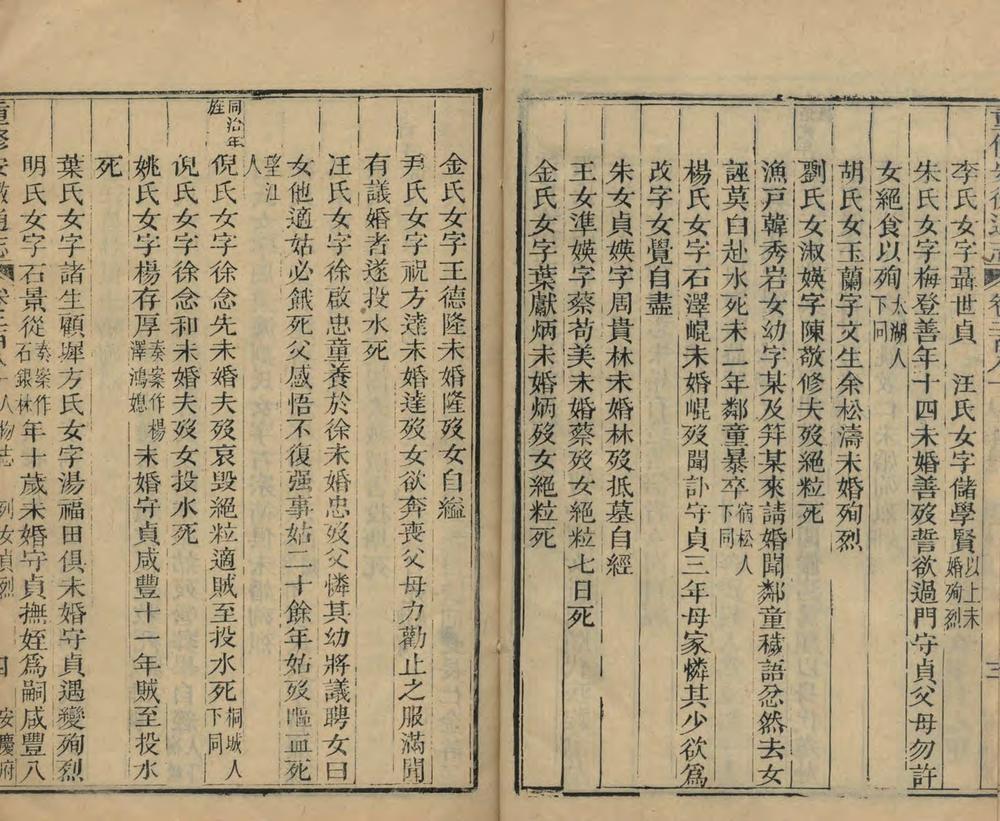 李氏女字聶世貞　汪氏女字儲學賢以上未婚殉烈
朱氏女字梅登善年十四未婚善歿誓欲過門守貞父母勿許
女絕食以殉太湖人下同
胡氏女玉蘭字文生余松濤未婚殉烈
劉氏女淑媖字陳敬修夫歿絕粒死
漁戶韓秀岩女幼字某及笄某來請婚聞鄰童穢語忿然去女
誣莫白赴水死未二年鄰童暴卒宿松人下同
楊氏女字石澤崐未婚崐歿聞訃守貞三年母家憐其少欲爲
改字女覺自盡
朱女貞媖字周貴林未婚林歿抵墓自經
王女準媖字蔡苟美未婚蔡歿女絕粒七日死
金氏女字葉獻炳未婚炳歿女絕粒死
金氏女字王德隆未婚隆歿女自縊
尹氏女字祝方達未婚達歿女欲奔喪父母力勸止之服滿聞
有議婚者遂投水死
汪氏女字徐啟忠童養於徐未婚忠歿父憐其幼將議聘女曰
女他適姑必餓死父感悟不復强事姑二十餘年姑歿嘔血死
望江人
同治年旌
倪氏女字徐念先未婚夫歿哀毀絕粒適賊至投水死桐城人下同
倪氏女字徐念和未婚夫歿女投水死
姚氏女字楊存厚奏案作楊澤鴻媳未婚守貞咸豐十一年賊至投水
死
葉氏女字諸生顧墀方氏女字湯福田俱未婚守貞遇變殉烈
明氏女字石景從奏案作石銀林年十歲未婚守貞撫姪爲嗣咸豐八
重修安徽通志　人物志　列女貞烈　四　安慶府